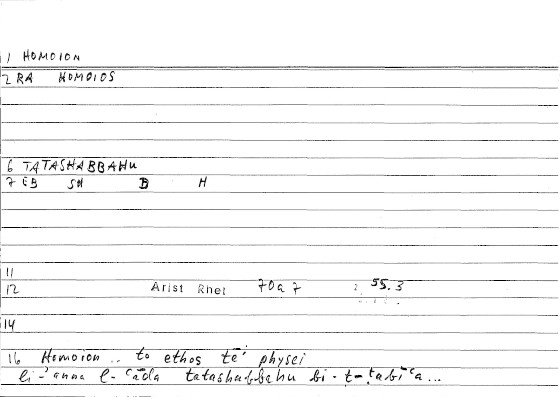 1 HOMOION
2 RA HOMOIOS
6 TATASHABBAHU
7 EB SH B H
11
12 Arist Rhet 70a7 55.3
14
16 Homoion .. to ethos tē physei
li-'anna l-ʿāda tatashabbahu bi-t-tabīʿa...